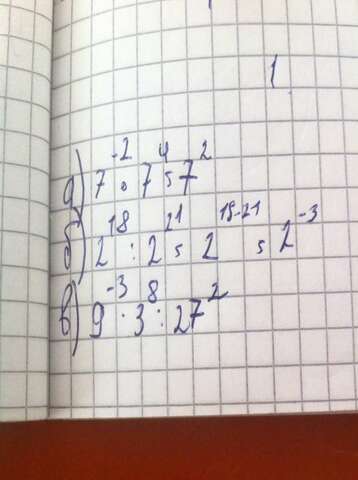 1
а) 7⁻² · 7⁴ = 7²
б) 2¹⁸ : 2²¹ = 2¹⁸⁻²¹ = 2⁻³
в) 9⁻³ · 3⁸ : 27²